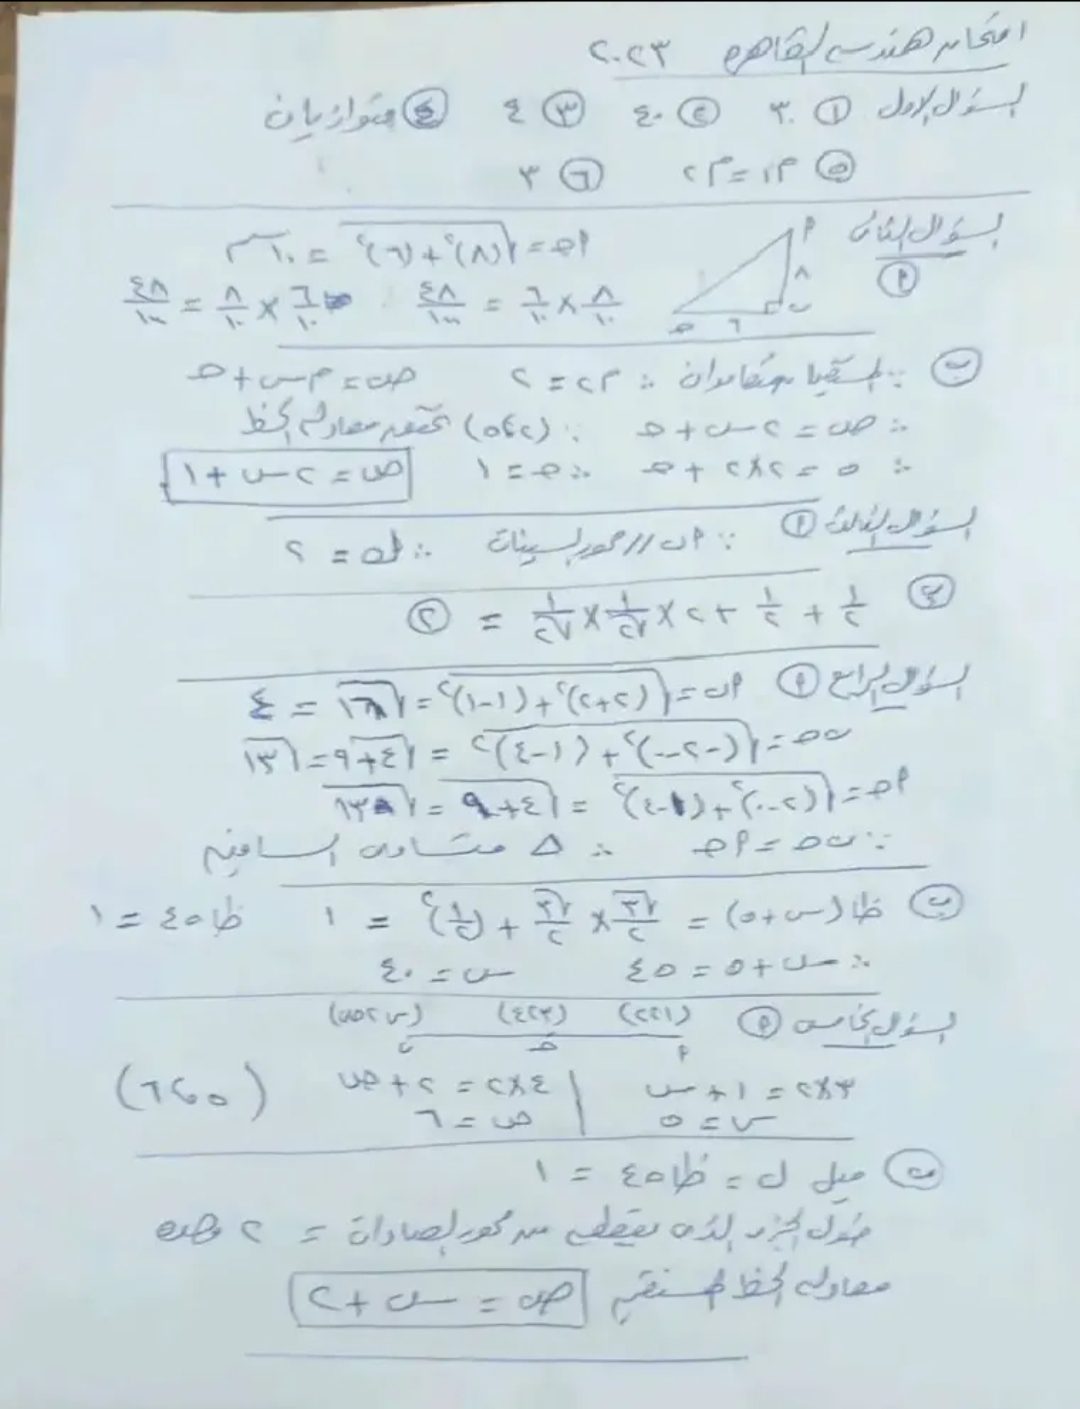 امتحان هندسة القاهرة ٢٠٢٣
السؤال الأول ① ٣٠ ② ٤٠ ③ ٤ ④ متوازيان
⑤ م١ = م٢ ⑥ ٣
السؤال الثاني
أ
أ ٨ ب ٦ حـ
أحـ = √(٨)² + (٦)² = ١٠ سم
٨/١٠ × ٦/١٠ = ٤٨/١٠٠ ٦/١٠ × ٨/١٠ = ٤٨/١٠٠
ب ∵ المستقيمان متعامدان ∴ م٢ = ٢ ص = م س + حـ
∴ ص = ٢ س + حـ ∵ (٢،٥) تحقق معادلة الخط
∴ ٥ = ٢×٢ + حـ ∴ حـ = ١ ص = ٢ س + ١
السؤال الثالث أ ∵ أب // محور السينات ∴ ك = ٢
ب ١/٢ + ١/٢ + ٢ × ١/√٢ × ١/√٢ = ②
السؤال الرابع أ أب = √(٢+٢)² + (١-١)² = √١٦ = ٤
ب حـ = √(-٢-٠)² + (١-٤)² = √٤+٩ = √١٣
أحـ = √(٢-٠)² + (١-٤)² = √٤+٩ = √١٣
∵ ب حـ = أحـ ∴ △ متساوى الساقين
ب ظا (س+٥) = √٣/٢ × √٣/٢ + (١/٢)² = ١ ظا ٤٥ = ١
∴ س + ٥ = ٤٥ س = ٤٠
السؤال الخامس أ (١،٢) (٣،٤) (س،ص)
أ حـ ب
٣×٢ = ١ + س | ٤×٢ = ٢ + ص (٥،٦)
س = ٥ ص = ٦
ب ميل ل = ظا ٤٥ = ١
طول الجزء الذى يقطعه من محور الصادات = ٢ وحدة
معادلة الخط المستقيم ص = س + ٢